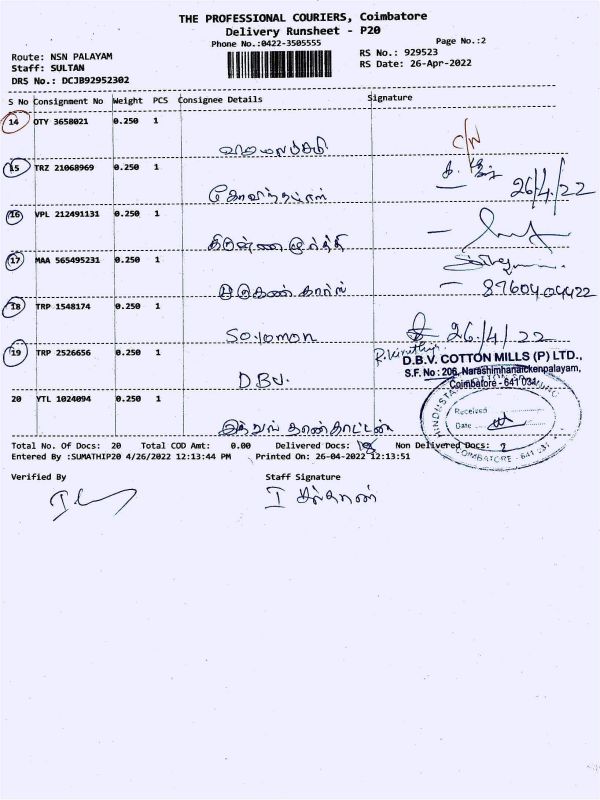 THE PROFESSIONAL COURIERS, Coimbatore
Delivery Runsheet - P20
Phone No.:0422-3505555
Page No.:2
Route: NSN PALAYAM
RS No.: 929523
Staff: SULTAN
RS Date: 26-Apr-2022
DRS No.: DCJB92952302
S No Consignment No Weight PCS Consignee Details Signature
14 OTY 3658021 0.250 1
C/N
15 TRZ 21068969 0.250 1
26/4/22
16 VPL 212491131 0.250 1
17 MAA 565495231 0.250 1
8760404422
18 TRP 1548174 0.250 1
Solomon
26/4/22
19 TRP 2526656 0.250 1
D.B.V.
D.B.V. COTTON MILLS (P) LTD.,
S.F. No : 206, Narashimhanaickenpalayam,
Coimbatore - 641 031
20 YTL 1024094 0.250 1
Received
Date
COIMBATORE - 641 031
Total No. Of Docs: 20 Total COD Amt: 0.00 Delivered Docs: 18 Non Delivered Docs: 2
Entered By :SUMATHIP20 4/26/2022 12:13:44 PM Printed On: 26-04-2022 12:13:51
Verified By Staff Signature